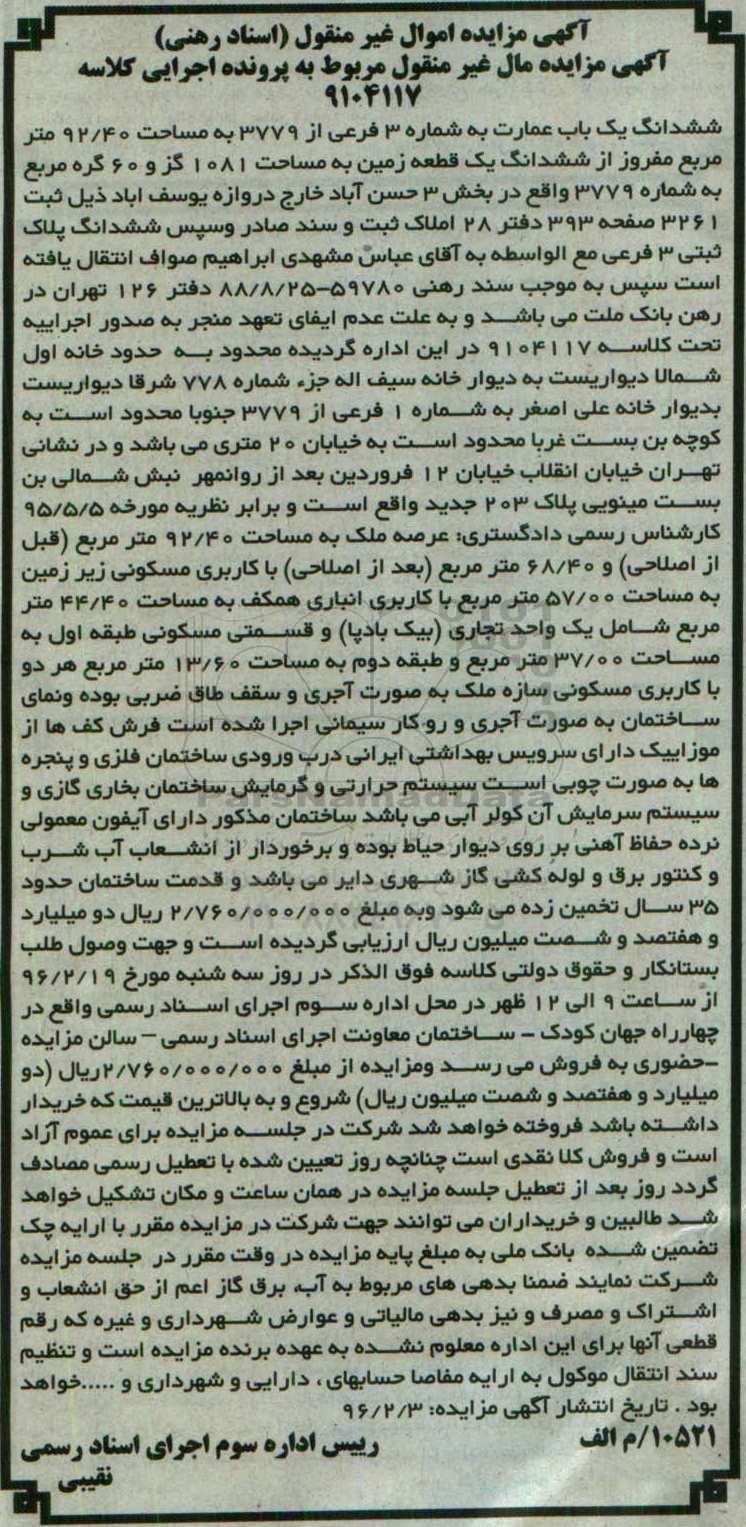 آگهی مزایده اموال غیر منقول (اسناد رهنی)
آگهی مزایده مال غیر منقول مربوط به پرونده اجرایی کلاسه
۹۱۰۴۱۱۷
ششدانگ یک باب عمارت به شماره ۳ فرعی از ۳۷۷۹ به مساحت ۹۲/۴۰ متر
مربع مفروز از ششدانگ یک قطعه زمین به مساحت ۱۰۸۱ گز و ۶۰ گره مربع
به شماره ۳۷۷۹ واقع در بخش ۳ حسن آباد خارج دروازه یوسف اباد ذیل ثبت
۳۲۶۱ صفحه ۳۹۳ دفتر ۲۸ املاک ثبت و سند صادر وسپس ششدانگ پلاک
ثبتی ۳ فرعی مع الواسطه به آقای عباس مشهدی ابراهیم صواف انتقال یافته
است سپس به موجب سند رهنی ۵۹۷۸۰-۸۸/۸/۲۵ دفتر ۱۲۶ تهران در
رهن بانک ملت می باشد و به علت عدم ایفای تعهد منجر به صدور اجراییه
تحت کلاسه ۹۱۰۴۱۱۷ در این اداره گردیده محدود به حدود خانه اول
شمالا دیواریست به دیوار خانه سیف اله جزء شماره ۷۷۸ شرقا دیواریست
بدیوار خانه علی اصغر به شماره ۱ فرعی از ۳۷۷۹ جنوبا محدود است به
کوچه بن بست غربا محدود است به خیابان ۲۰ متری می باشد و در نشانی
تهران خیابان انقلاب خیابان ۱۲ فروردین بعد از روانمهر نبش شمالی بن
بست مینویی پلاک ۲۰۳ جدید واقع است و برابر نظریه مورخه ۹۵/۵/۵
کارشناس رسمی دادگستری: عرصه ملک به مساحت ۹۲/۴۰ متر مربع (قبل
از اصلاحی) و ۶۸/۴۰ متر مربع (بعد از اصلاحی) با کاربری مسکونی زیر زمین
به مساحت ۵۷/۰۰ متر مربع با کاربری انباری همکف به مساحت ۴۴/۴۰ متر
مربع شامل یک واحد تجاری (بیک بادپا) و قسمتی مسکونی طبقه اول به
مساحت ۳۷/۰۰ متر مربع و طبقه دوم به مساحت ۱۳/۶۰ متر مربع هر دو
با کاربری مسکونی سازه ملک به صورت آجری و سقف طاق ضربی بوده ونمای
ساختمان به صورت آجری و رو کار سیمانی اجرا شده است فرش کف ها از
موزاییک دارای سرویس بهداشتی ایرانی درب ورودی ساختمان فلزی و پنجره
ها به صورت چوبی است سیستم حرارتی و گرمایش ساختمان بخاری گازی و
سیستم سرمایش آن کولر آبی می باشد ساختمان مذکور دارای آیفون معمولی
نرده حفاظ آهنی بر روی دیوار حیاط بوده و برخوردار از انشعاب آب شرب
و کنتور برق و لوله کشی گاز شهری دایر می باشد و قدمت ساختمان حدود
۳۵ سال تخمین زده می شود وبه مبلغ ۲/۷۶۰/۰۰۰/۰۰۰ ریال دو میلیارد
و هفتصد و شصت میلیون ریال ارزیابی گردیده است و جهت وصول طلب
بستانکار و حقوق دولتی کلاسه فوق الذکر در روز سه شنبه مورخ ۹۶/۲/۱۹
از ساعت ۹ الی ۱۲ ظهر در محل اداره سوم اجرای اسناد رسمی واقع در
چهارراه جهان کودک - ساختمان معاونت اجرای اسناد رسمی – سالن مزایده
-حضوری به فروش می رسد ومزایده از مبلغ ۲/۷۶۰/۰۰۰/۰۰۰ریال (دو
میلیارد و هفتصد و شصت میلیون ریال) شروع و به بالاترین قیمت که خریدار
داشته باشد فروخته خواهد شد شرکت در جلسه مزایده برای عموم آزاد
است و فروش کلا نقدی است چنانچه روز تعیین شده با تعطیل رسمی مصادف
گردد روز بعد از تعطیل جلسه مزایده در همان ساعت و مکان تشکیل خواهد
شد طالبین و خریداران می توانند جهت شرکت در مزایده مقرر با ارایه چک
تضمین شده بانک ملی به مبلغ پایه مزایده در وقت مقرر در جلسه مزایده
شرکت نمایند ضمنا بدهی های مربوط به آب، برق گاز اعم از حق انشعاب و
اشتراک و مصرف و نیز بدهی مالیاتی و عوارض شهرداری و غیره که رقم
قطعی آنها برای این اداره معلوم نشده به عهده برنده مزایده است و تنظیم
سند انتقال موکول به ارایه مفاصا حسابهای ، دارایی و شهرداری و .....خواهد
بود . تاریخ انتشار آگهی مزایده: ۹۶/۲/۳
۱۰۵۲۱/م الف رییس اداره سوم اجرای اسناد رسمی
نقیبی